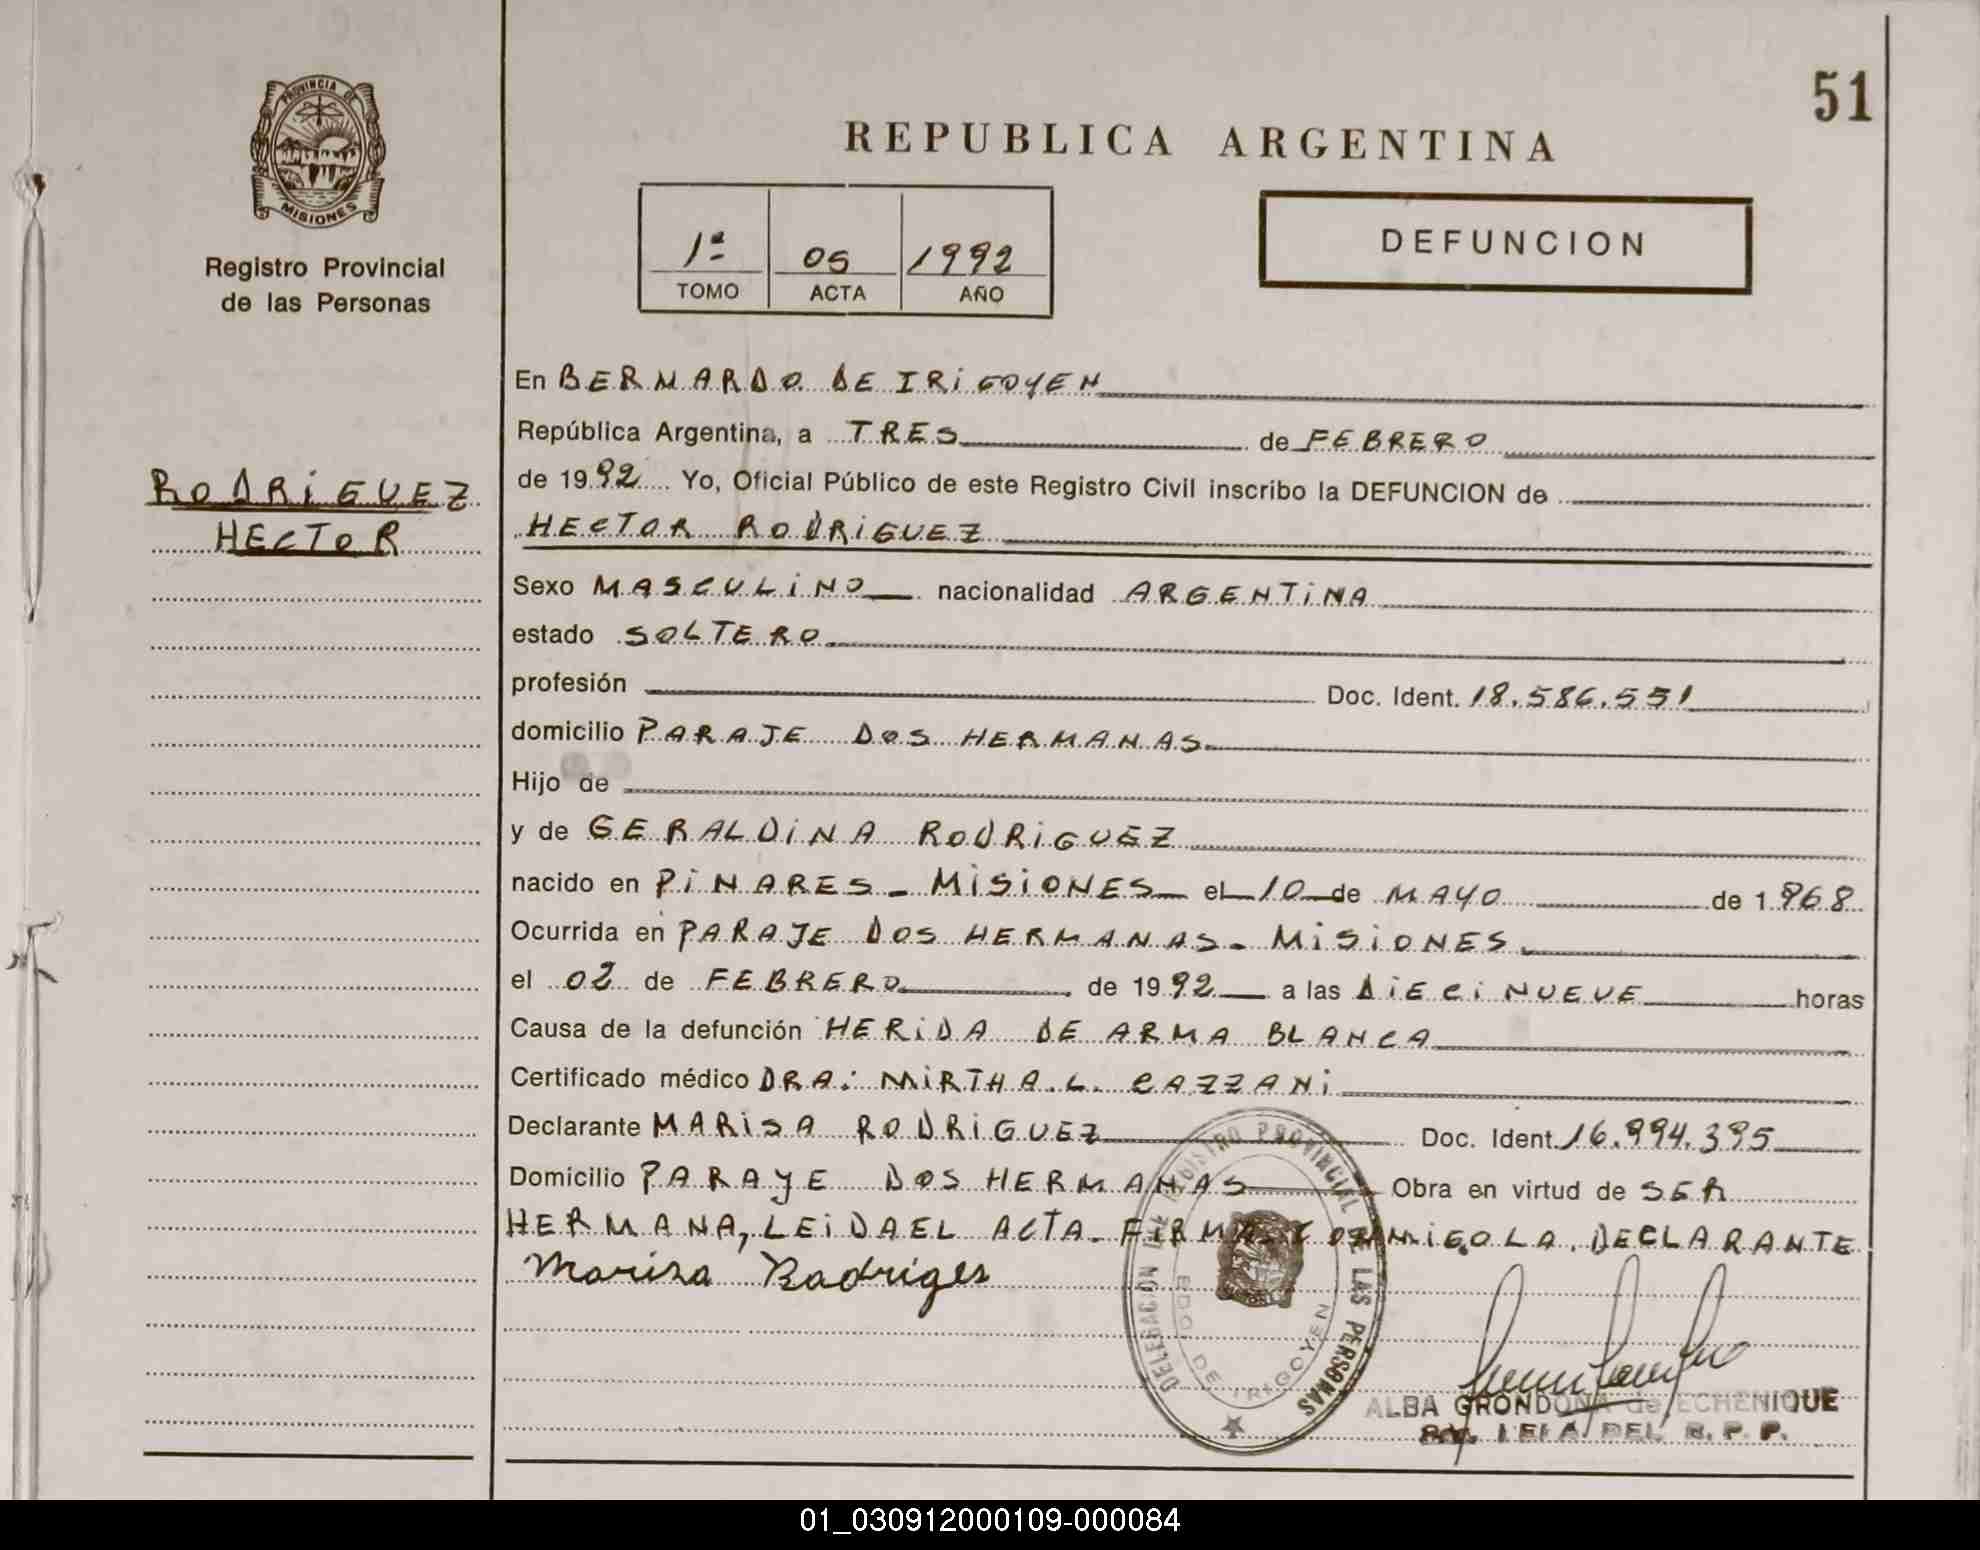 51
PROVINCIA DE
MISIONES
Registro Provincial
de las Personas
REPUBLICA ARGENTINA
1ª 05 1992
TOMO ACTA AÑO
DEFUNCION
RODRIGUEZ
HECTOR
En BERNARDO DE IRIGOYEN
República Argentina, a TRES de FEBRERO
de 1992 Yo, Oficial Público de este Registro Civil inscribo la DEFUNCION de
HECTOR RODRIGUEZ
Sexo MASCULINO nacionalidad ARGENTINA
estado SOLTERO
profesión Doc. Ident. 18.586.551
domicilio PARAJE DOS HERMANAS
Hijo de
y de GERALDINA RODRIGUEZ
nacido en PINARES - MISIONES el 10 de MAYO de 1968
Ocurrida en PARAJE DOS HERMANAS - MISIONES
el 02 de FEBRERO de 1992 a las DIECINUEVE horas
Causa de la defunción HERIDA DE ARMA BLANCA
Certificado médico DRA: MIRTHA.L. CAZZANI
Declarante MARISA RODRIGUEZ Doc. Ident. 16.994.395
Domicilio PARAYE DOS HERMANAS Obra en virtud de SER
HERMANA, LEIDA EL ACTA FIRMA CONMIGO LA DECLARANTE
Marisa Rodriges
DELEGACION DE REGISTRO PROVINCIAL DE LAS PERSONAS
BDO. DE IRIGOYEN
ALBA GRONDONA de ECHENIQUE
DEL R. P. P.
01_030912000109-000084